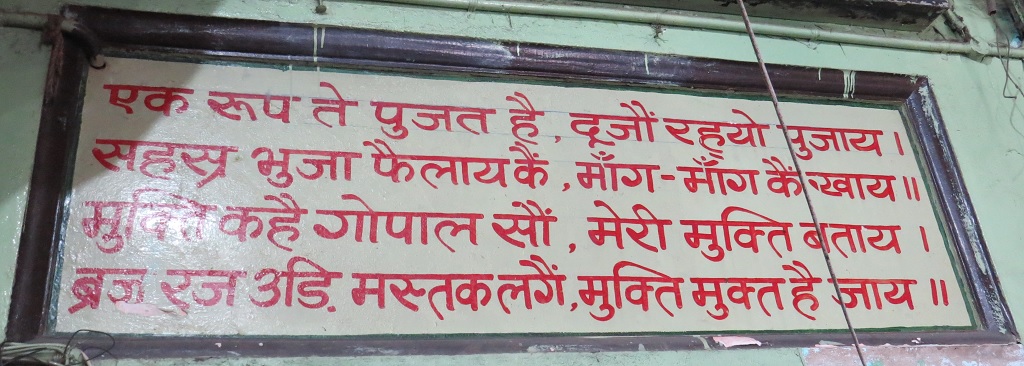 एक रूप ते पुजत है, दूजौं रह्यो पुजाय।
सहस्र भुजा फैलाय कैं, माँग-माँग कैं खाय॥
मुक्ति कहै गोपाल सौं, मेरी मुक्ति बताय।
ब्रज रज उडि़ मस्तक लगैं, मुक्ति मुक्त है जाय॥